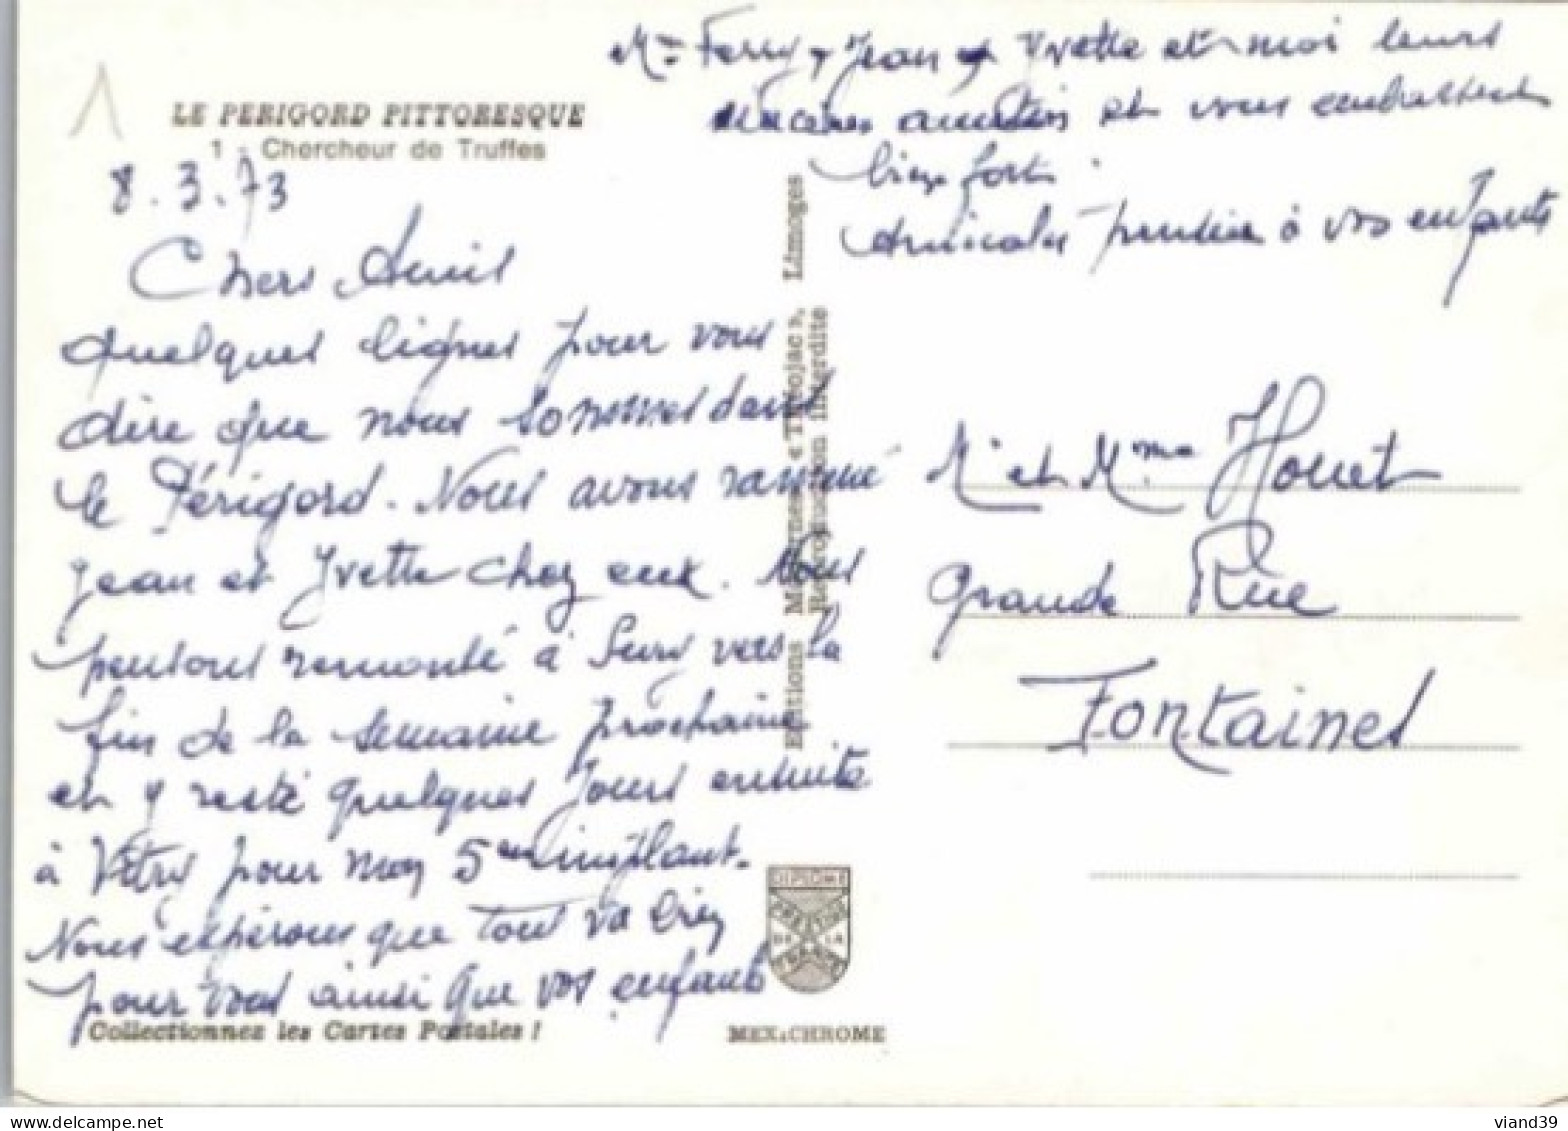 LE PERIGORD PITTORESQUE
1 - Chercheur de Truffes
8.3.73
Chers Amis
quelques lignes pour vous
dire que nous sommes dans
le Périgord. Nous avons ramené
Jean et Yvette chez eux. Nous
pensons remonté à Sury vers la
fin de la semaine prochaine
et y resté quelques jours ensuite
à Vitry pour mon 5em implant.
Nous espérons que tout va bien
pour vous ainsi que vos enfants
Collectionnez les Cartes Postales !
Mme Ferry, Jean, Yvette et moi leurs
sincères amitiés et vous embrassent
bien fort.
Amicales pensées à vos enfants
Editions Modernes « Théojac », Limoges
Reproduction interdite
Mr et Mme Houet
Grande Rue
Fontaines
DIPLOME
PRESTIGE
DE LA
FRANCE
MEXICHROME
viand39